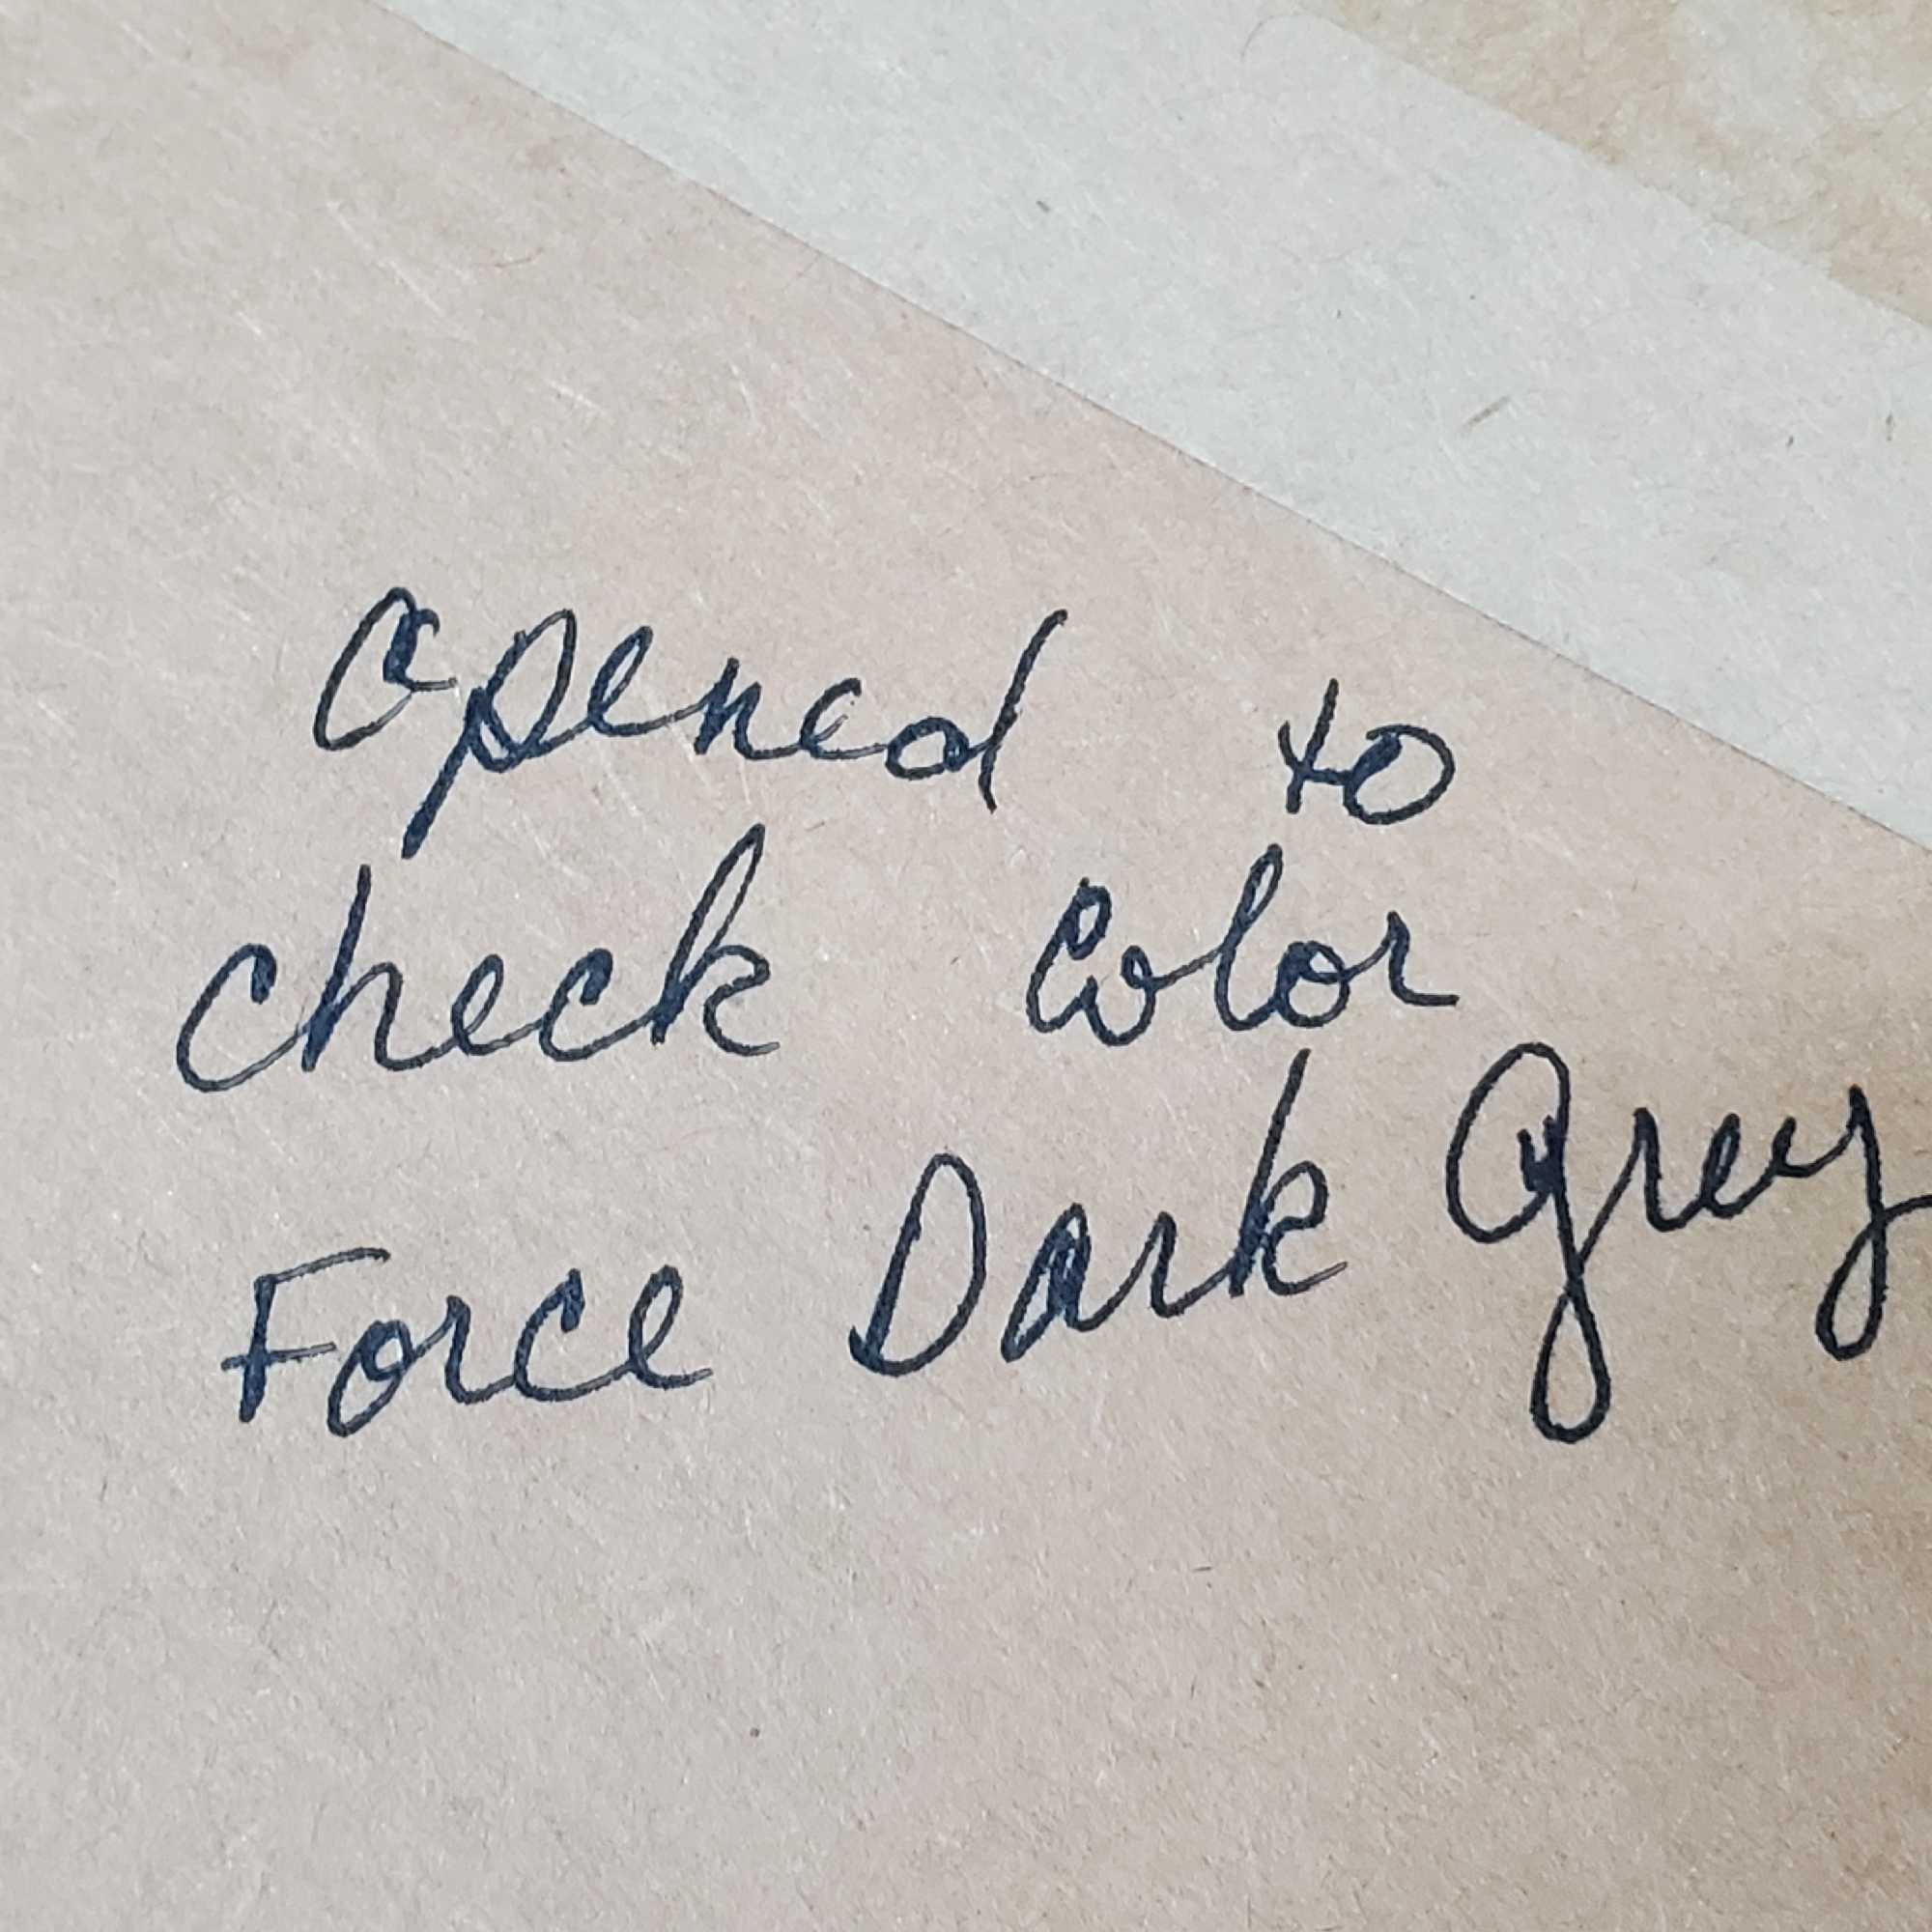 opened to
check color
Force Dark Grey